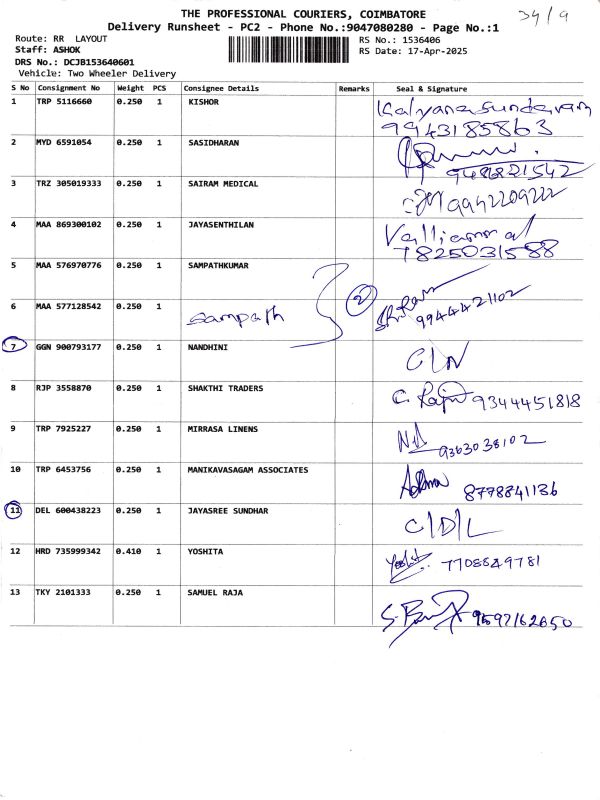 THE PROFESSIONAL COURIERS, COIMBATORE
34/9
Delivery Runsheet - PC2 - Phone No.:9047080280 - Page No.:1
Route: RR LAYOUT
RS No.: 1536406
Staff: ASHOK
RS Date: 17-Apr-2025
DRS No.: DCJB153640601
Vehicle: Two Wheeler Delivery
S No Consignment No Weight PCS Consignee Details Remarks Seal & Signature
1 TRP 5116660 0.250 1 KISHOR Kalyanasundaram
9943185863
2 MYD 6591054 0.250 1 SASIDHARAN
9486821542
3 TRZ 305019333 0.250 1 SAIRAM MEDICAL 9942209222
4 MAA 869300102 0.250 1 JAYASENTHILAN Valliammal
7825031588
5 MAA 576970776 0.250 1 SAMPATHKUMAR
6 MAA 577128542 0.250 1 Sampath 2 9944421102
7 GGN 900793177 0.250 1 NANDHINI C/N
8 RJP 3558870 0.250 1 SHAKTHI TRADERS C. Raju 9344451818
9 TRP 7925227 0.250 1 MIRRASA LINENS 9363038102
10 TRP 6453756 0.250 1 MANIKAVASAGAM ASSOCIATES 8778841136
11 DEL 600438223 0.250 1 JAYASREE SUNDHAR C/D/L
12 HRD 735999342 0.410 1 YOSHITA 7708849781
13 TKY 2101333 0.250 1 SAMUEL RAJA 9597162650